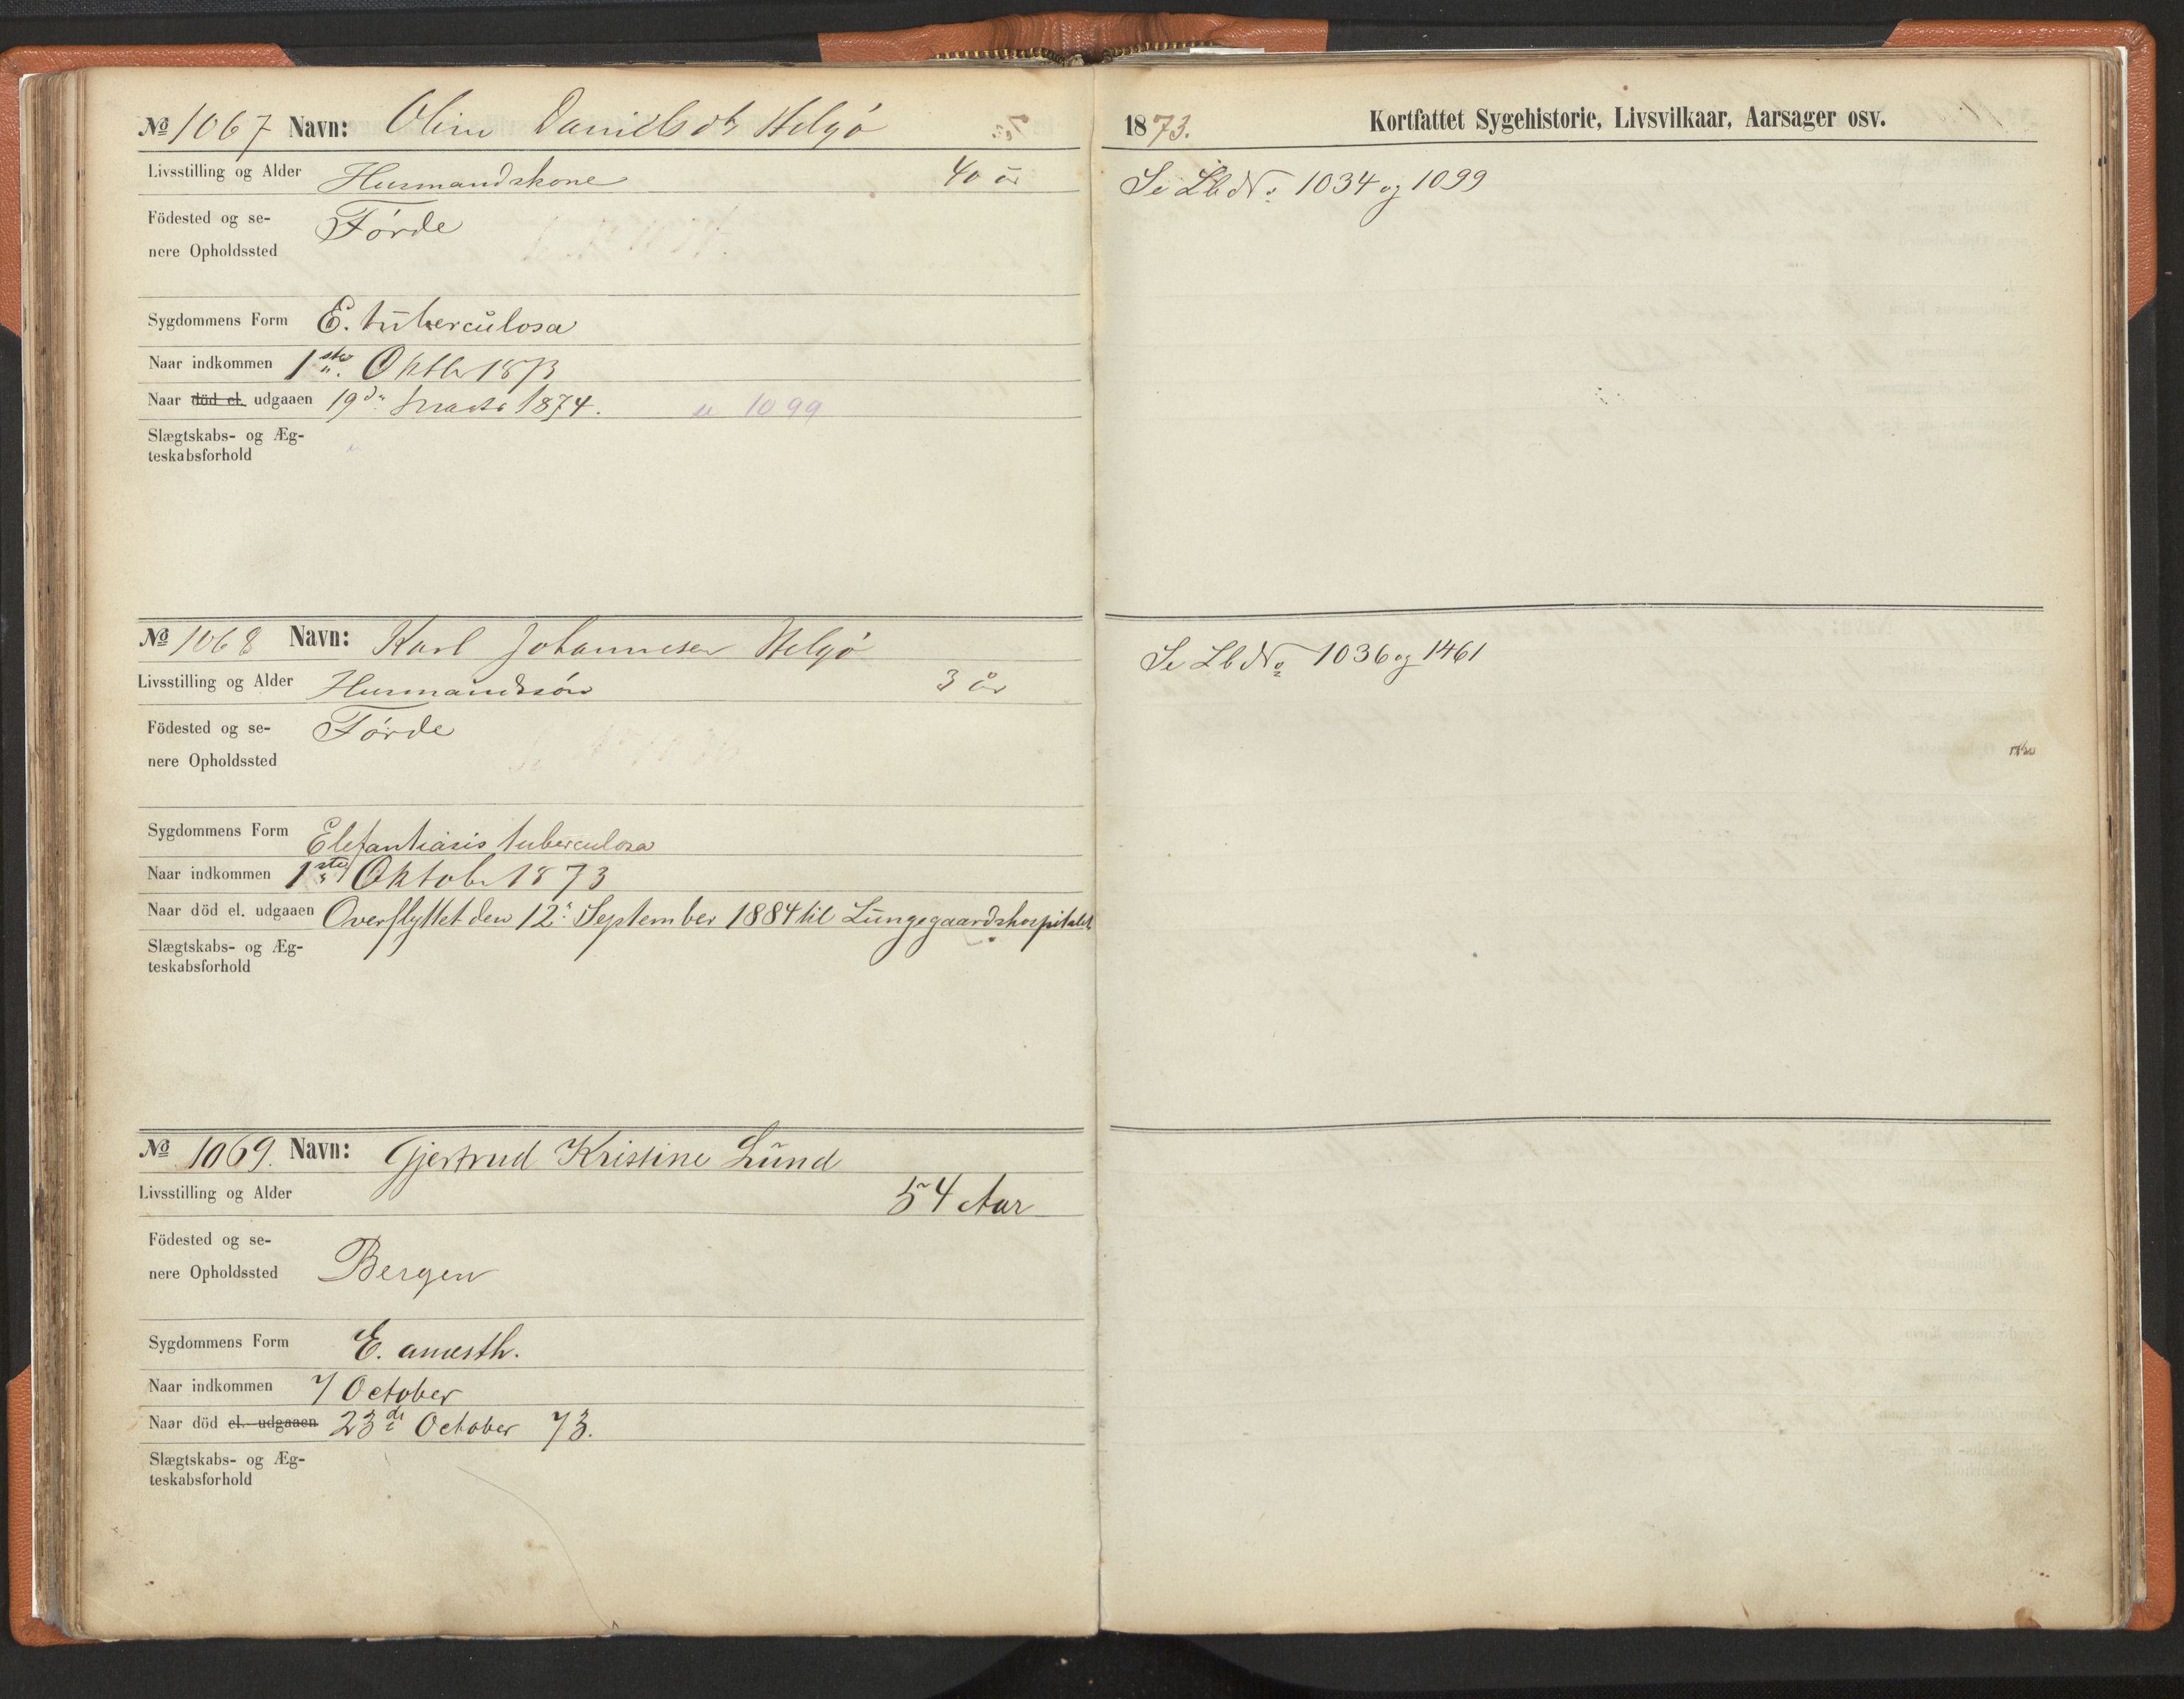 № 1067 Navn: Oline Danielsdtr Helgø
Livsstilling og Alder Husmandskone 40 år
Födested og se-
nere Opholdssted Førde
Sygdommens Form E. tuberculosa
Naar indkommen 1ste Oktbr 1873
Naar död el. udgaaen 19de Marts 1874. 1099
Slægtskabs- og Æg-
teskabsforhold
№ 1068 Navn: Karl Johannesen Helgø
Livsstilling og Alder Husmandssøn 3 år
Födested og se-
nere Opholdssted Førde
Sygdommens Form Elefantiasis tuberculosa
Naar indkommen 1ste Oktobr 1873
Naar död el. udgaaen Overflyttet den 12te September 1884 til Lungegaardshospitalet
Slægtskabs- og Æg-
teskabsforhold
№ 1069. Navn: Gjertrud Kristine Lund
Livsstilling og Alder 54 Aar
Födested og se-
nere Opholdssted Bergen
Sygdommens Form E. anæsth.
Naar indkommen 7 October
Naar död el. udgaaen 23de October 73.
Slægtskabs- og Æg-
teskabsforhold
1873. Kortfattet Sygehistorie, Livsvilkaar, Aarsager osv.
Se Lb No 1034 og 1099
Se Lb No 1036 og 1461